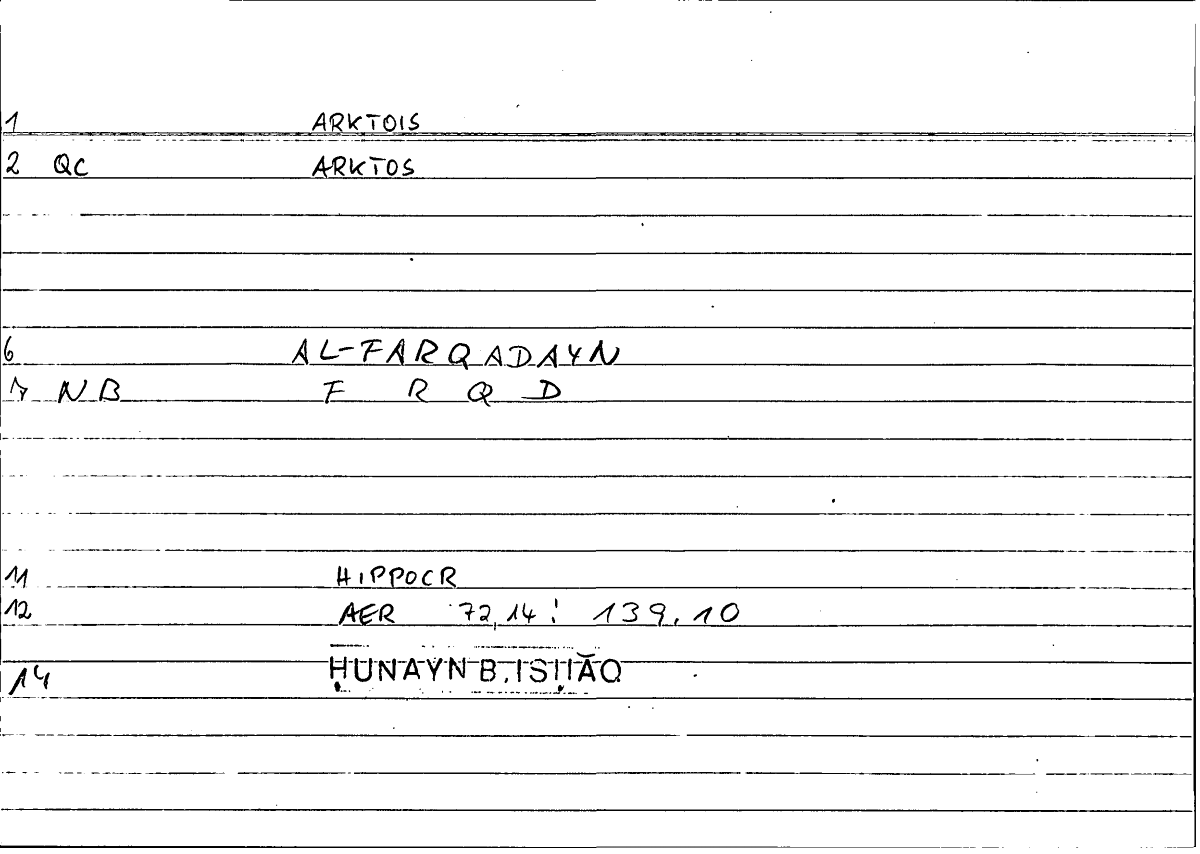 1 ARKTOIS
2 QC ARKTOS
6 AL-FARQADAYN
7 NB F R Q D
11 HIPPOCR
12 AER 72,14: 139,10
14 ḤUNAYN B. ISḤĀQ